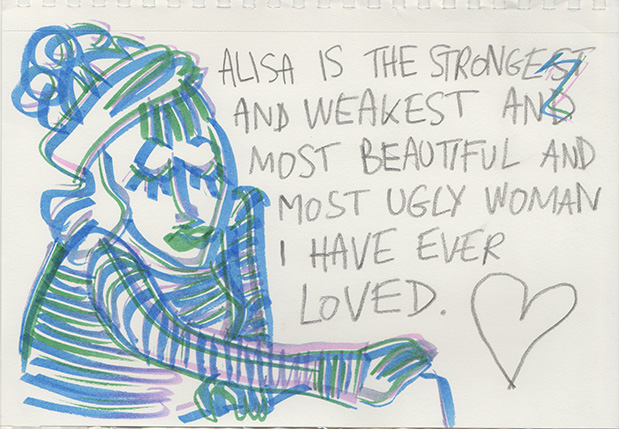 ALISA IS THE STRONGEST
AND WEAKEST AND
MOST BEAUTIFUL AND
MOST UGLY WOMAN
I HAVE EVER
LOVED.